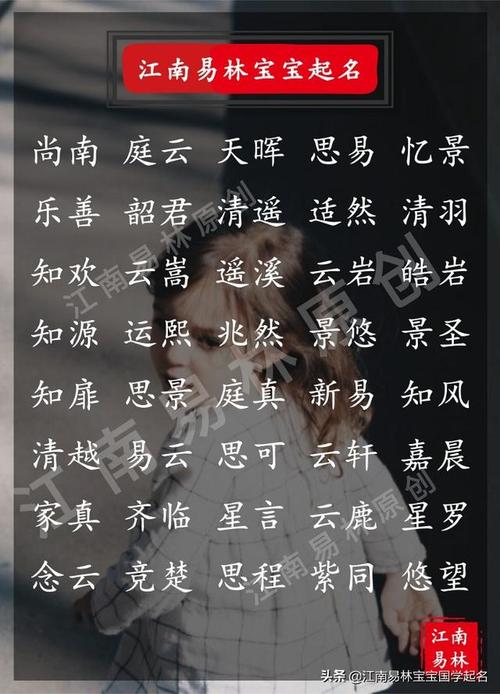 江南易林宝宝起名
尚南 庭云 天晖 思易 忆景
乐善 韶君 清遥 适然 清羽
知欢 云嵩 遥溪 云岩 皓岩
知源 运熙 兆然 景悠 景圣
知扉 思景 庭真 新易 知风
清越 易云 思可 云轩 嘉晨
家真 齐临 星言 云鹿 星罗
念云 竞楚 思程 紫同 悠望
江南易林原创
江南易林原创
江南易林原创
江南
易林
头条 @江南易林宝宝国学起名